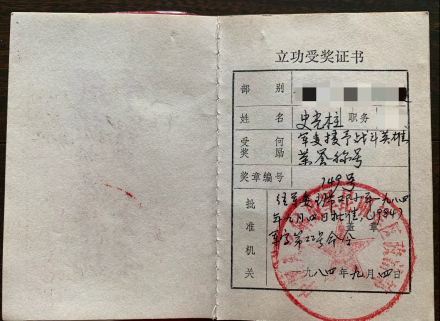 立功受奖证书
部别
姓名 史光柱 职务
受何奖励 军委授予战斗英雄
荣誉称号
奖章编号 149号
批准机关 盖章
年九月四日批准(1984)
第22号命令
一九八四年九月四日